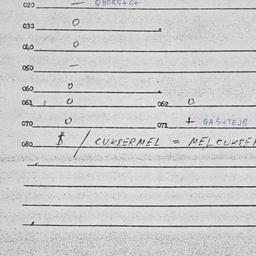 020 —
030 0
040 0
050 —
060 0
061 0 062 0
070 0 071 + GAS+TEJB
080 $ / CUKSERMEL = MELCUKSER